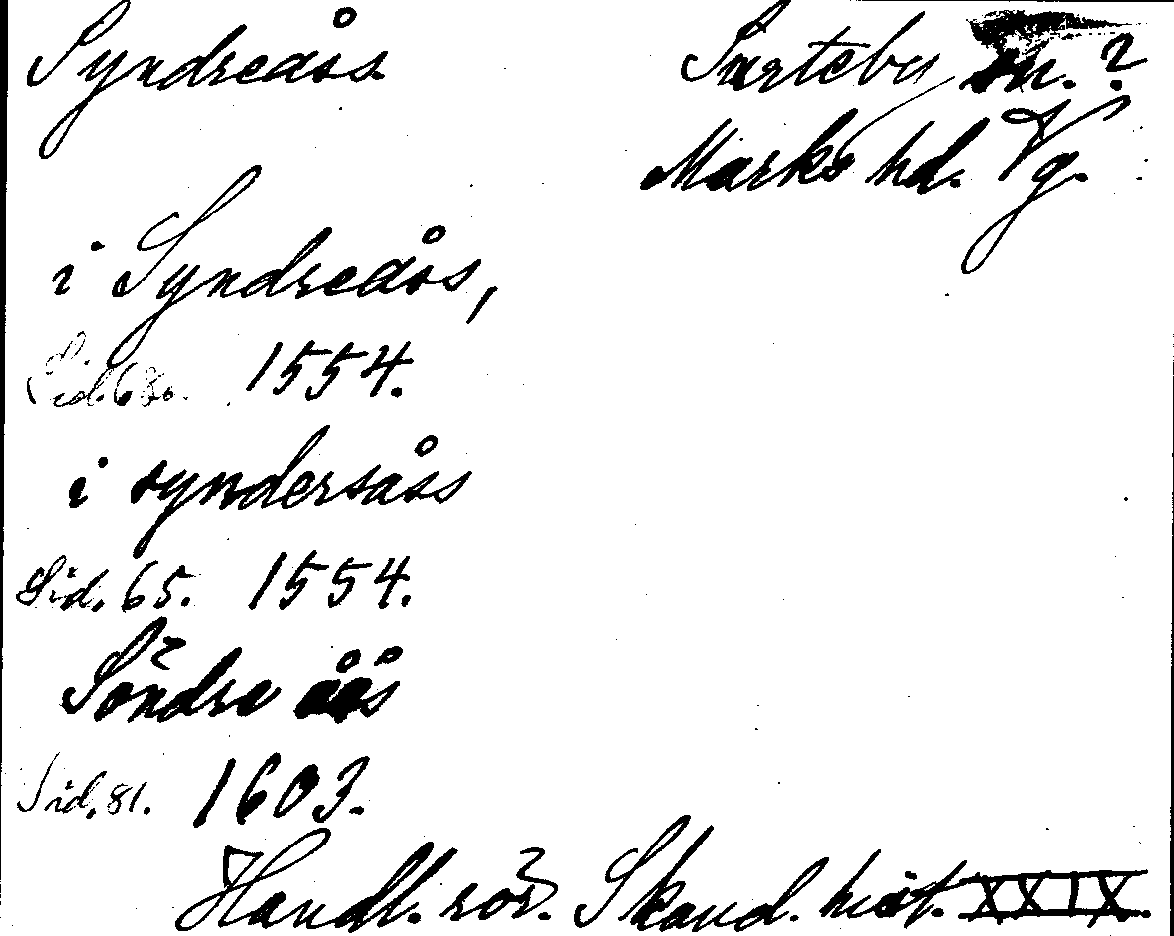 Syndreåss Surteby sn. ?
Marks hd. Vg.
i Syndreåss,
Sid. 68. 1554.
i syndersåss
Sid. 65. 1554.
Söndre åås
Sid. 81. 1603.
Handl. rör. Skand. hist. XXIX.